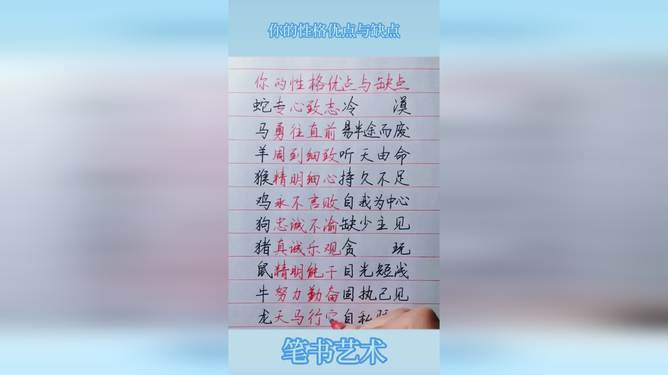 你的性格优点与缺点
你的性格优点与缺点
蛇专心致志冷 漠
马勇往直前易半途而废
羊周到细致听天由命
猴精明细心持久不足
鸡永不言败自我为中心
狗忠诚不渝缺少主见
猪真诚乐观贪 玩
鼠精明能干目光短浅
牛努力勤奋固执己见
龙天马行空自私
笔书艺术